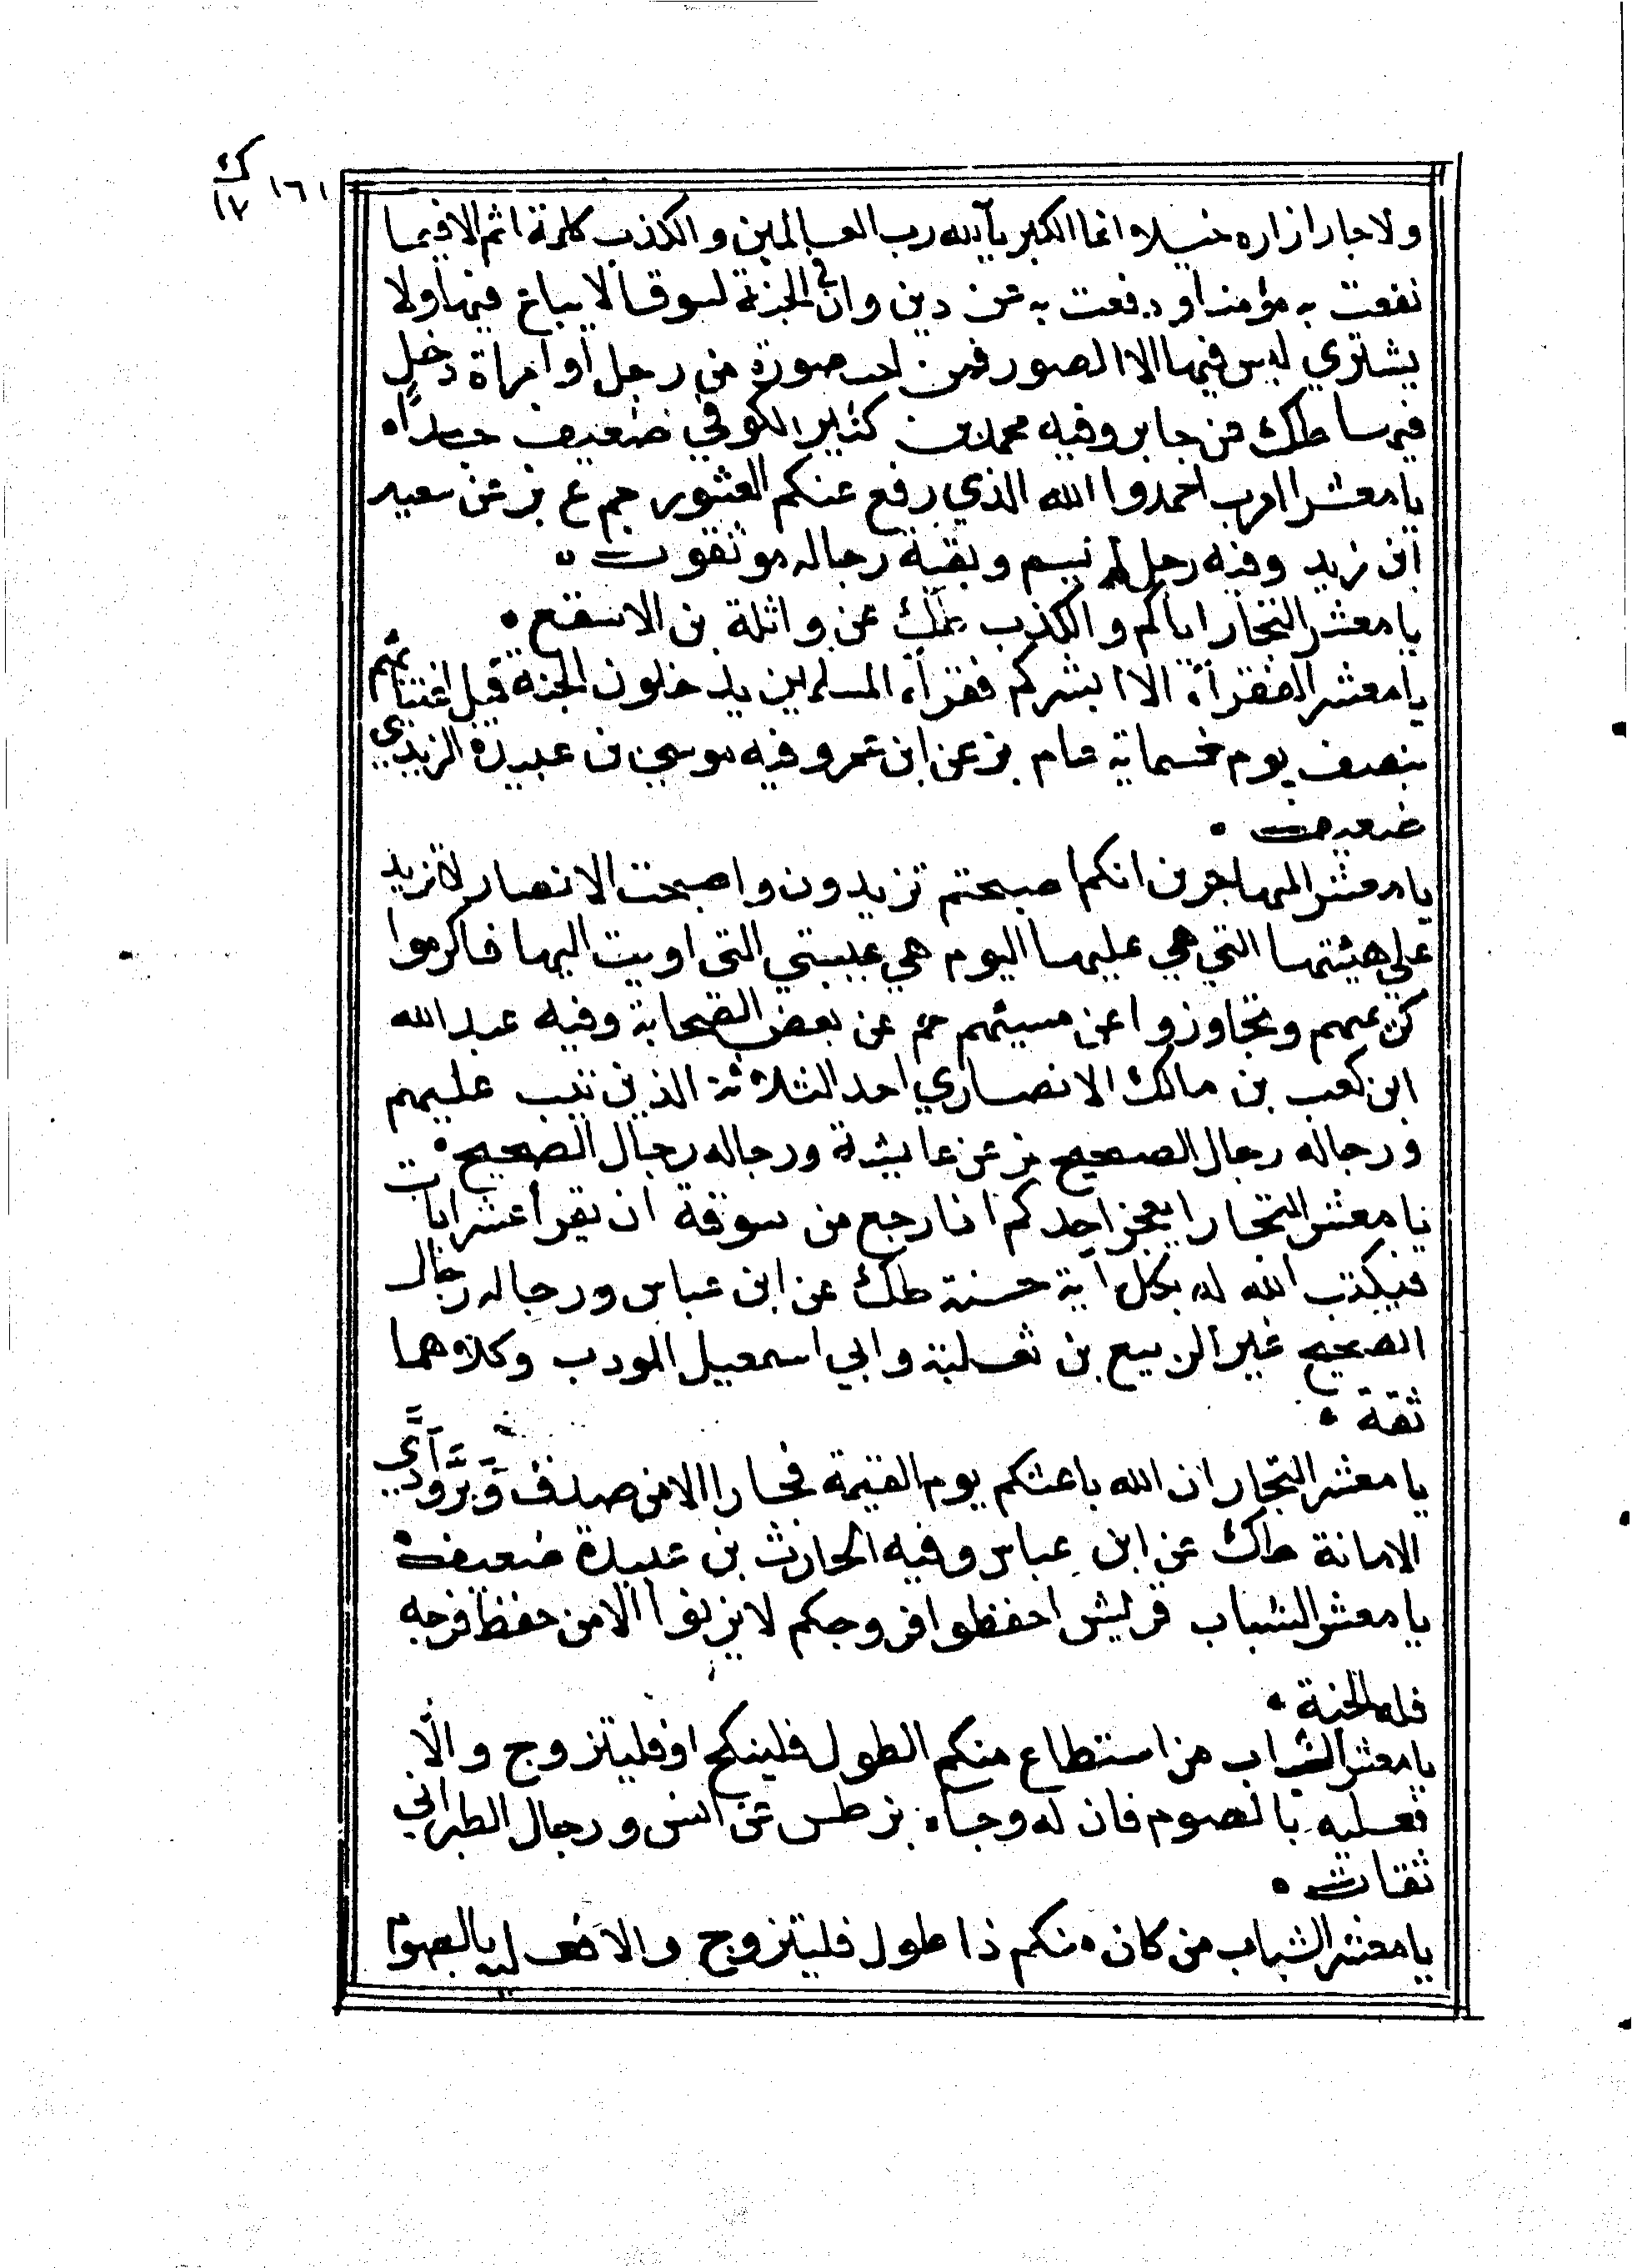 ك
١٧
١٦١
ولا جار ازاره خيلاء انما الكبرياء لله رب العالمين والكذب كلمة اثم الا فيما
نفعت به مؤمنا او دفعت به عن دين وان في الجنة لسوقا لا يباع فيها ولا
يشتري ليس فيها الا الصور فمن احب صورة من رجل او امراة دخل
فيها طك عن جابر وفيه محمد بن كثير الكوفي ضعيف جدا ه
يا معشر العرب احمدوا الله الذي رفع عنكم العشور حم ع بز عن سعيد
ابن زيد وفيه رجل لم يسم وبقية رجاله موثقون ه
يا معشر التجار اياكم والكذب طك عن واثلة بن الاسقع ه
يا معشر الفقراء الا ابشركم فقراء المسلمين يدخلون الجنة قبل اغنيائهم
بنصف يوم خمسماية عام بز عن ابن عمر وفيه موسي بن عبيدة الزبدي
ضعيف ه
يا معشر المهاجرين انكم اصبحتم تزيدون واصبحت الانصار لا تزيد
علي هيئتها التي هي عليها اليوم هي عيبتي التي اويت اليها فاكرموا
كريمهم وتجاوزوا عن مسيئهم حم عن بعض الصحابة وفيه عبد الله
ابن كعب بن مالك الانصاري احد الثلاثة الذين تيب عليهم
ورجاله رجال الصحيح بز عن عايشة ورجاله رجال الصحيح ه
يا معشر التجار ايعجز احدكم اذا رجع من سوقه ان يقرأ عشر ايات
فيكتب الله له بكل آية حسنة طك عن ابن عباس ورجاله رجال
الصحيح غير الربيع بن ثعلبة وابي اسمعيل المودب وكلاهما
ثقة ه
يا معشر التجار ان الله باعثكم يوم القيمة فجارا الا من صدق وبر وادي
الامانة طك عن ابن عباس وفيه الحارث بن عبيدة ضعيف ه
يا معشر الشباب قريش احفظوا فروجكم لا تزنوا الا من حفظ فرجه
فله الجنة ه
يا معشر الشباب من استطاع منكم الطول فلينكح او فليتزوج والا
فعليه بالصوم فان له وجاء بز طس عن انس ورجال الطبراني
ثقات ه
يا معشر الشباب من كان منكم ذا طول فليتزوج والا فعليه بالصوم